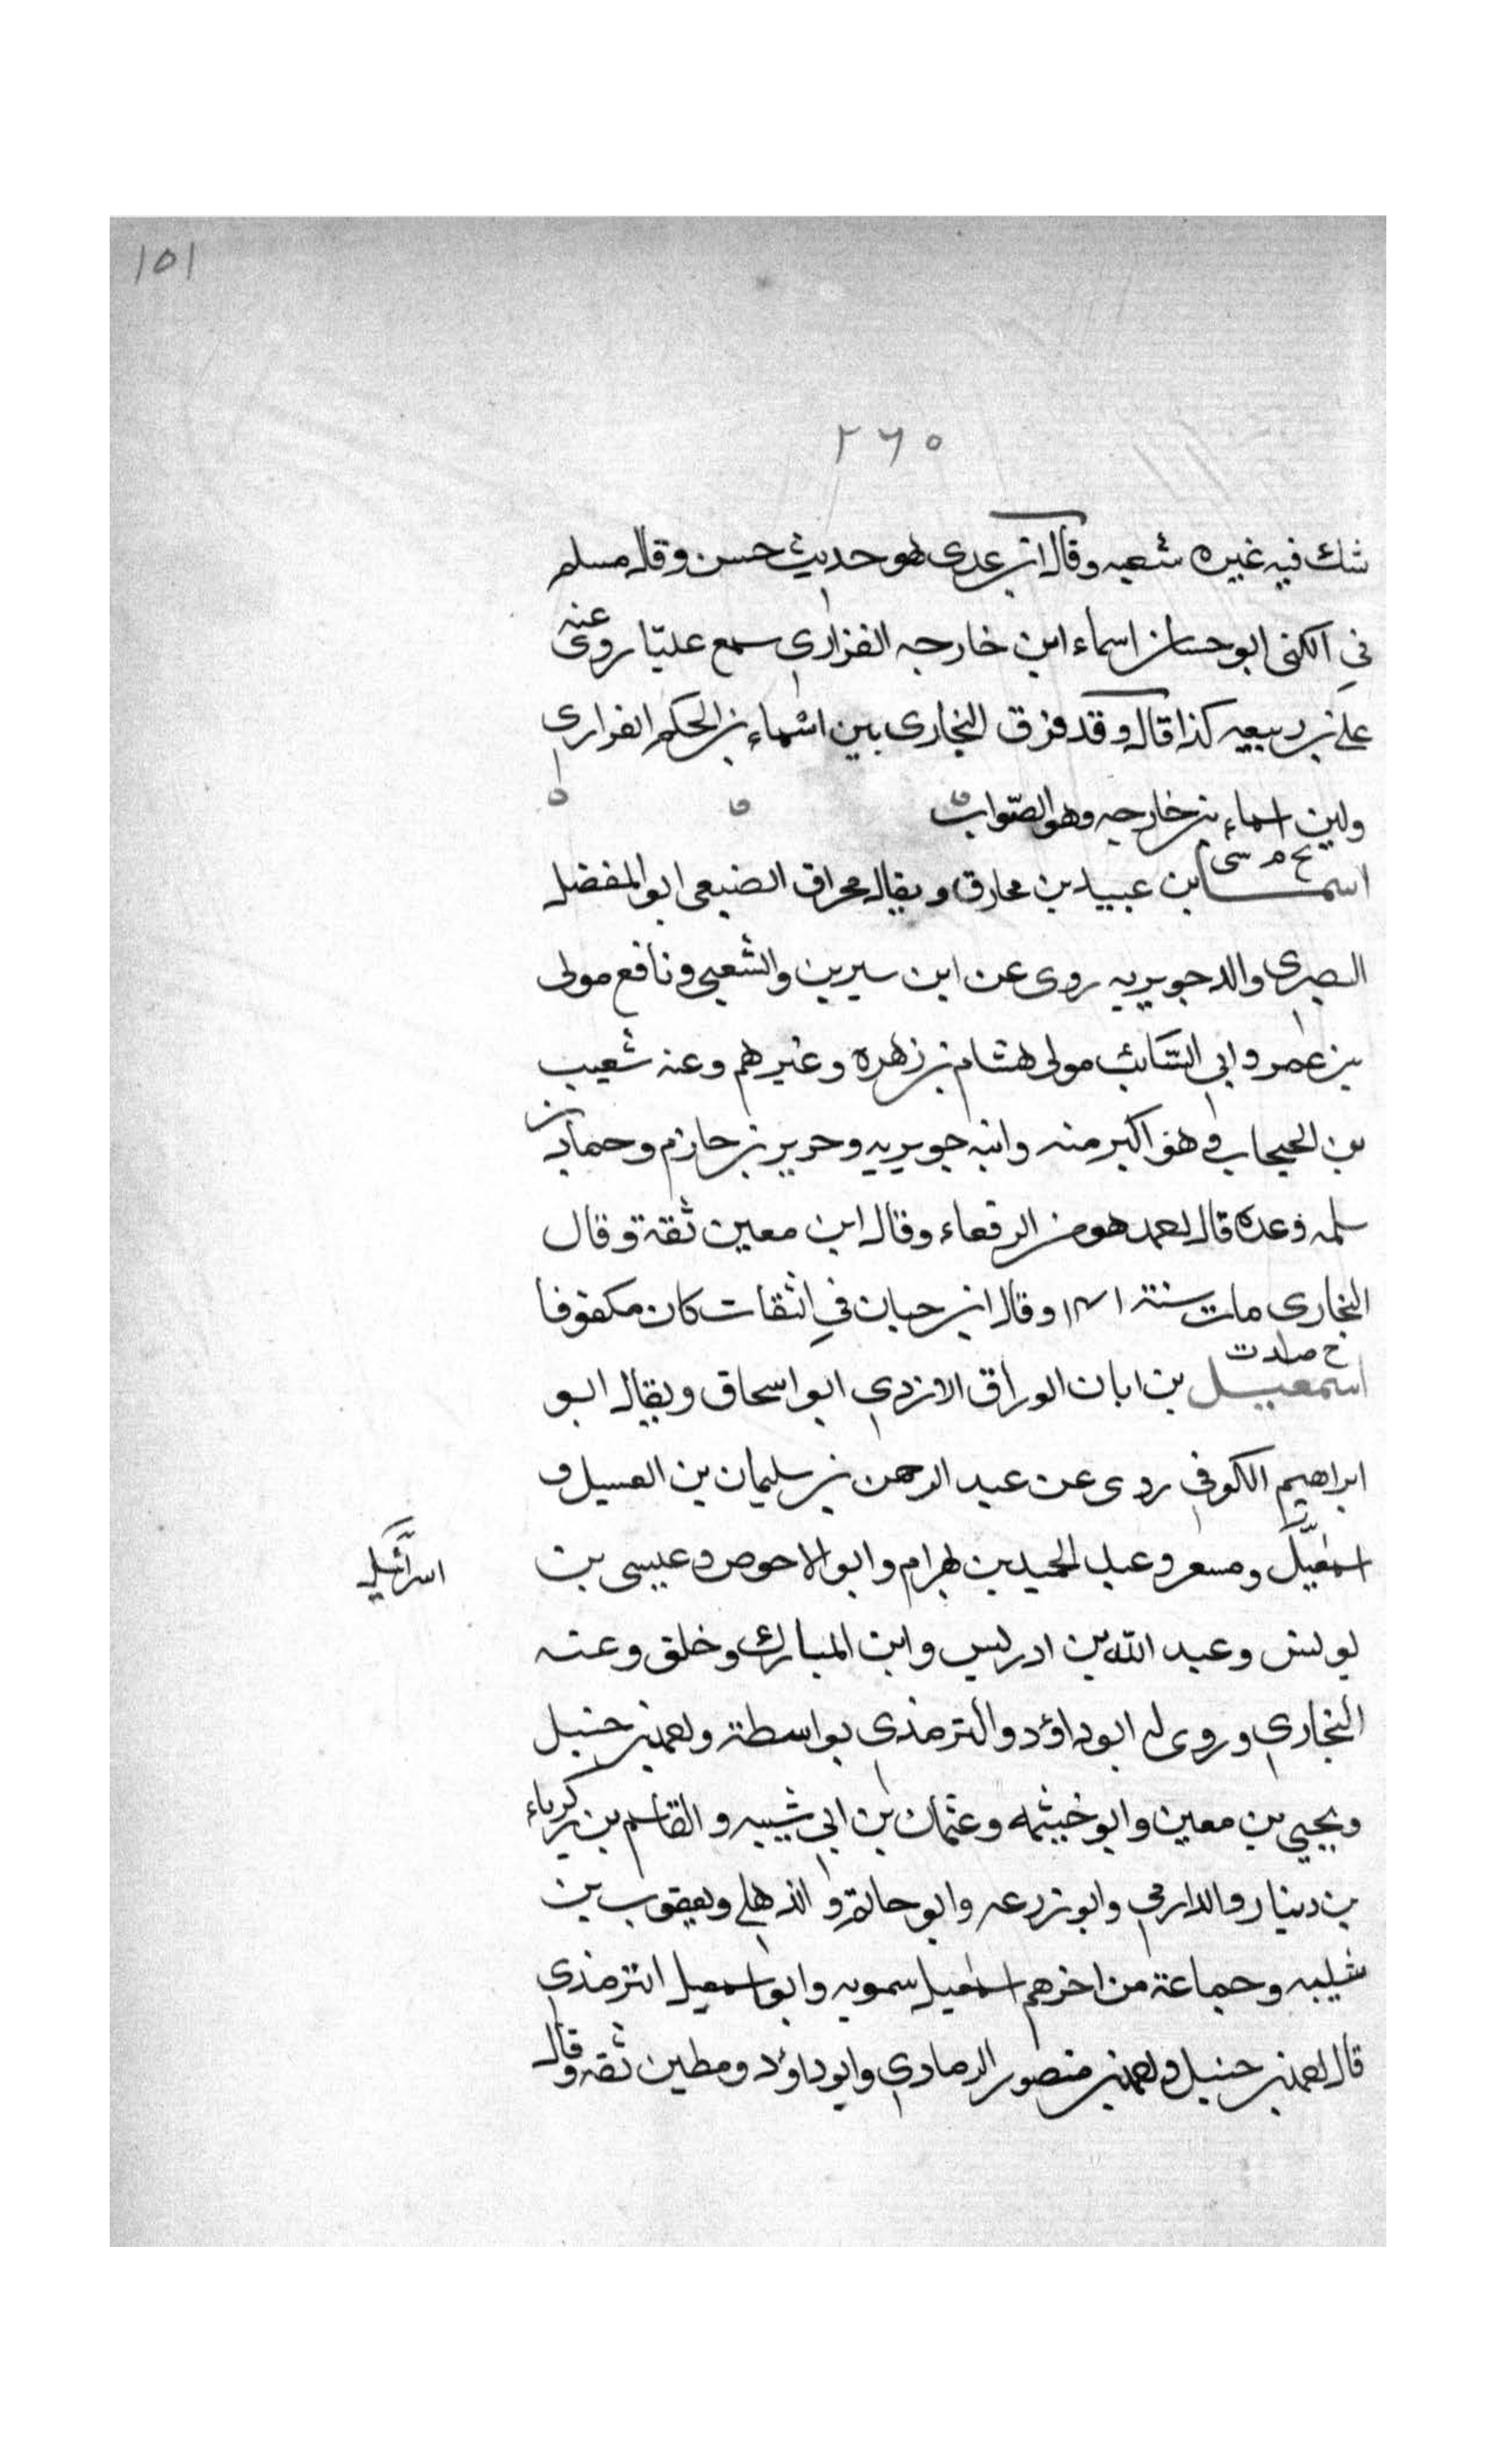 ١٥١
٢٦٥
شك فيه غيره شعبه وقال ابن عدى هو حديث حسن وقال مسلم
في الكنى ابو حسان اسماء ابن خارجه الفزاري سمع عليّا روى عنه
على بن ربيعه كذا قال وقد فرق البخارى بين اسماء بن الحكم الفزارى
وبين اسماء بن خارجه وهو الصّواب
بخ م سى
اسما بن عبيد بن مخارق ويقال مخراق الضبعى ابو المفضل
البصرى والد جويريه روى عن ابن سيرين والشعبي ونافع مولى
بن عمر وابي السّائب مولى هشام بن زهره وغيرهم وعنه شعيب
بن الحبحاب وهو اكبر منه وابنه جويريه وجرير بن حازم وحماد بن
سلمه وعده قال احمد هو من الرفعاء وقال ابن معين ثقة وقال
البخارى مات سنة ١٤١ وقال ابن حبان في الثقات كان مكفوفا
خ صد ت
اسمعيل بن ابان الوراق الازدي ابو اسحاق ويقال ابو
ابراهيم الكوفي روى عن عبد الرحمن بن سليمان بن الغسيل و
اسمعيل ومسعر وعبد الحميد بن بهرام وابو الاحوص وعيسى بن
اسرائيل
يونس وعبد الله بن ادريس وابن المبارك وخلق وعنه
البخاري وروى له ابو داؤد والترمذي بواسطة واحمد بن حنبل
ويحيي بن معين وابو خيثمه وعثمان بن ابي شيبه والقاسم بن زكرياء
بن دينار والدارمي وابو زرعه وابو حاتم والذهلي ويعقوب بن
شيبه وجماعة من اخرهم اسمعيل سمويه وابو اسمعيل الترمذي
قال احمد بن حنبل واحمد بن منصور الرمادي وابو داؤد ومطين ثقه وقال